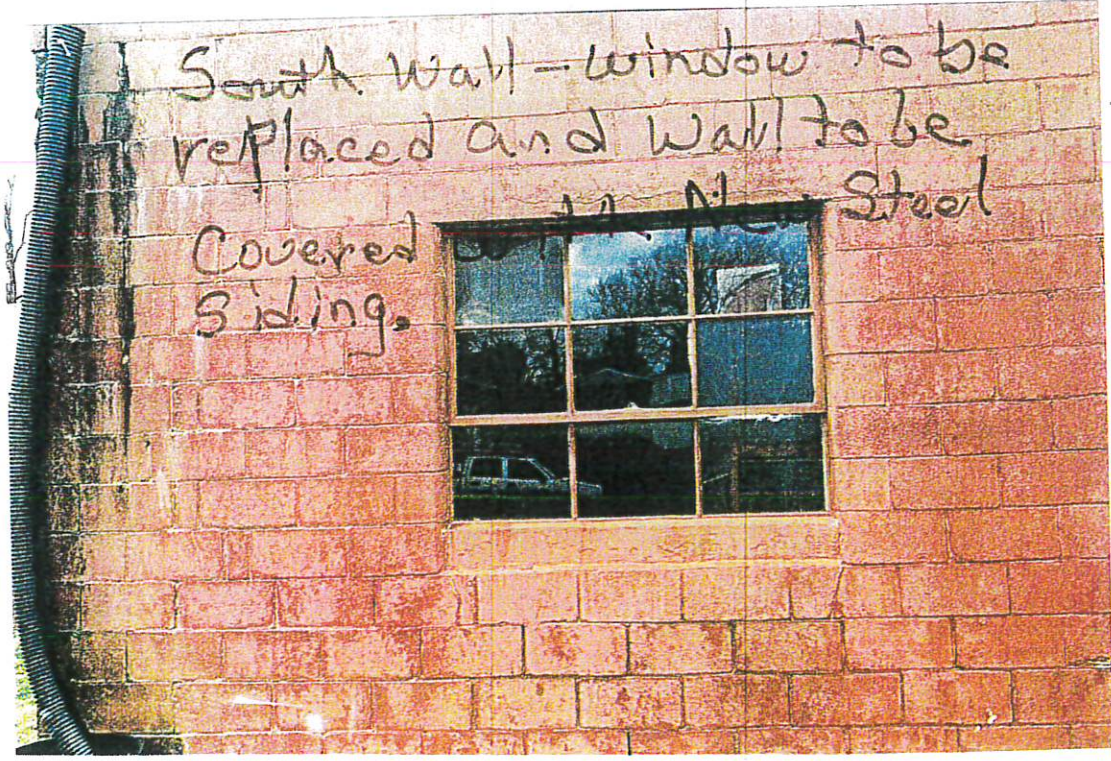 South Wall - window to be
replaced and Wall to be
Covered with New Steel
Siding.